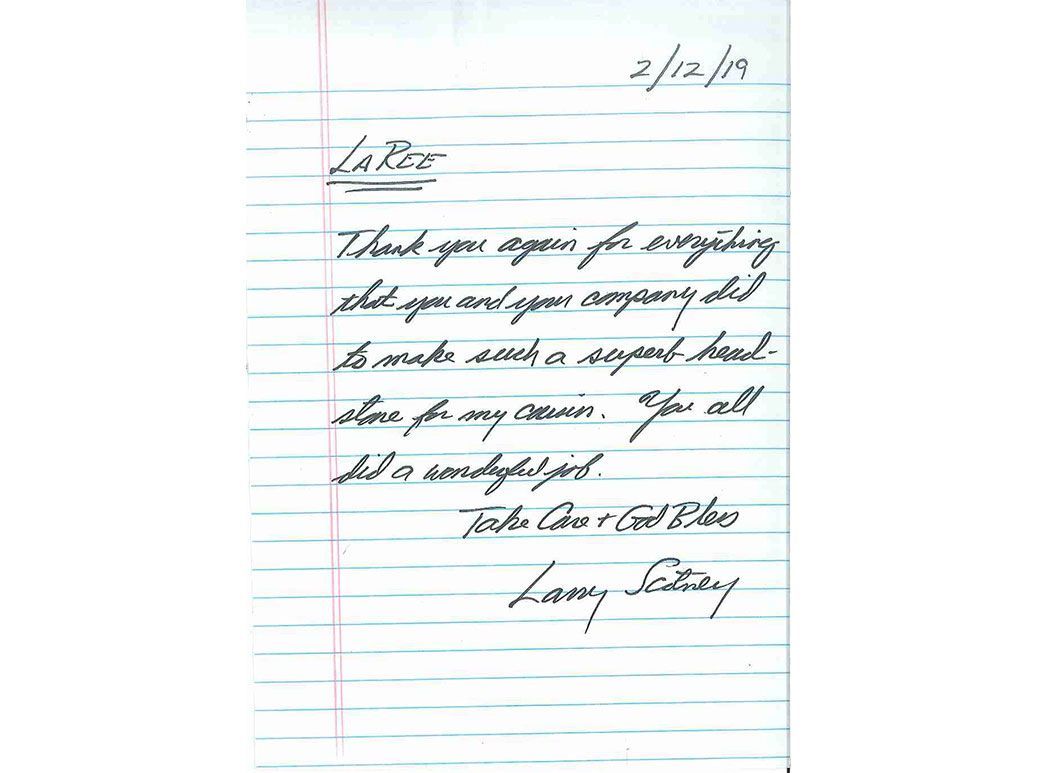 2/12/19
LAREE
Thank you again for everything
that you and your company did
to make such a superb head-
stone for my cousin. You all
did a wonderful job.
Take Care + God Bless
Larry Scitney